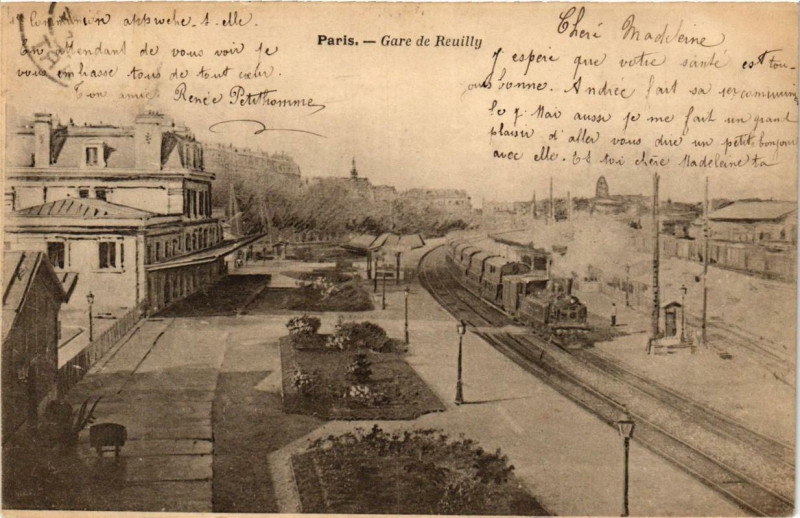 Paris. — Gare de Reuilly
Cheré Madeleine
J'espère que votre santé est tou-
jours bonne. Andrée fait sa 1ere communion
le 9 Mai aussi je me fait un grand
plaisir d'aller vous dire un petit bonjour
avec elle. Et toi chère Madeleine ta
1re Communion approche-t-elle.
En attendant de vous voir je
vous embrasse tous de tout cœur.
Ton amie Renée Petithomme